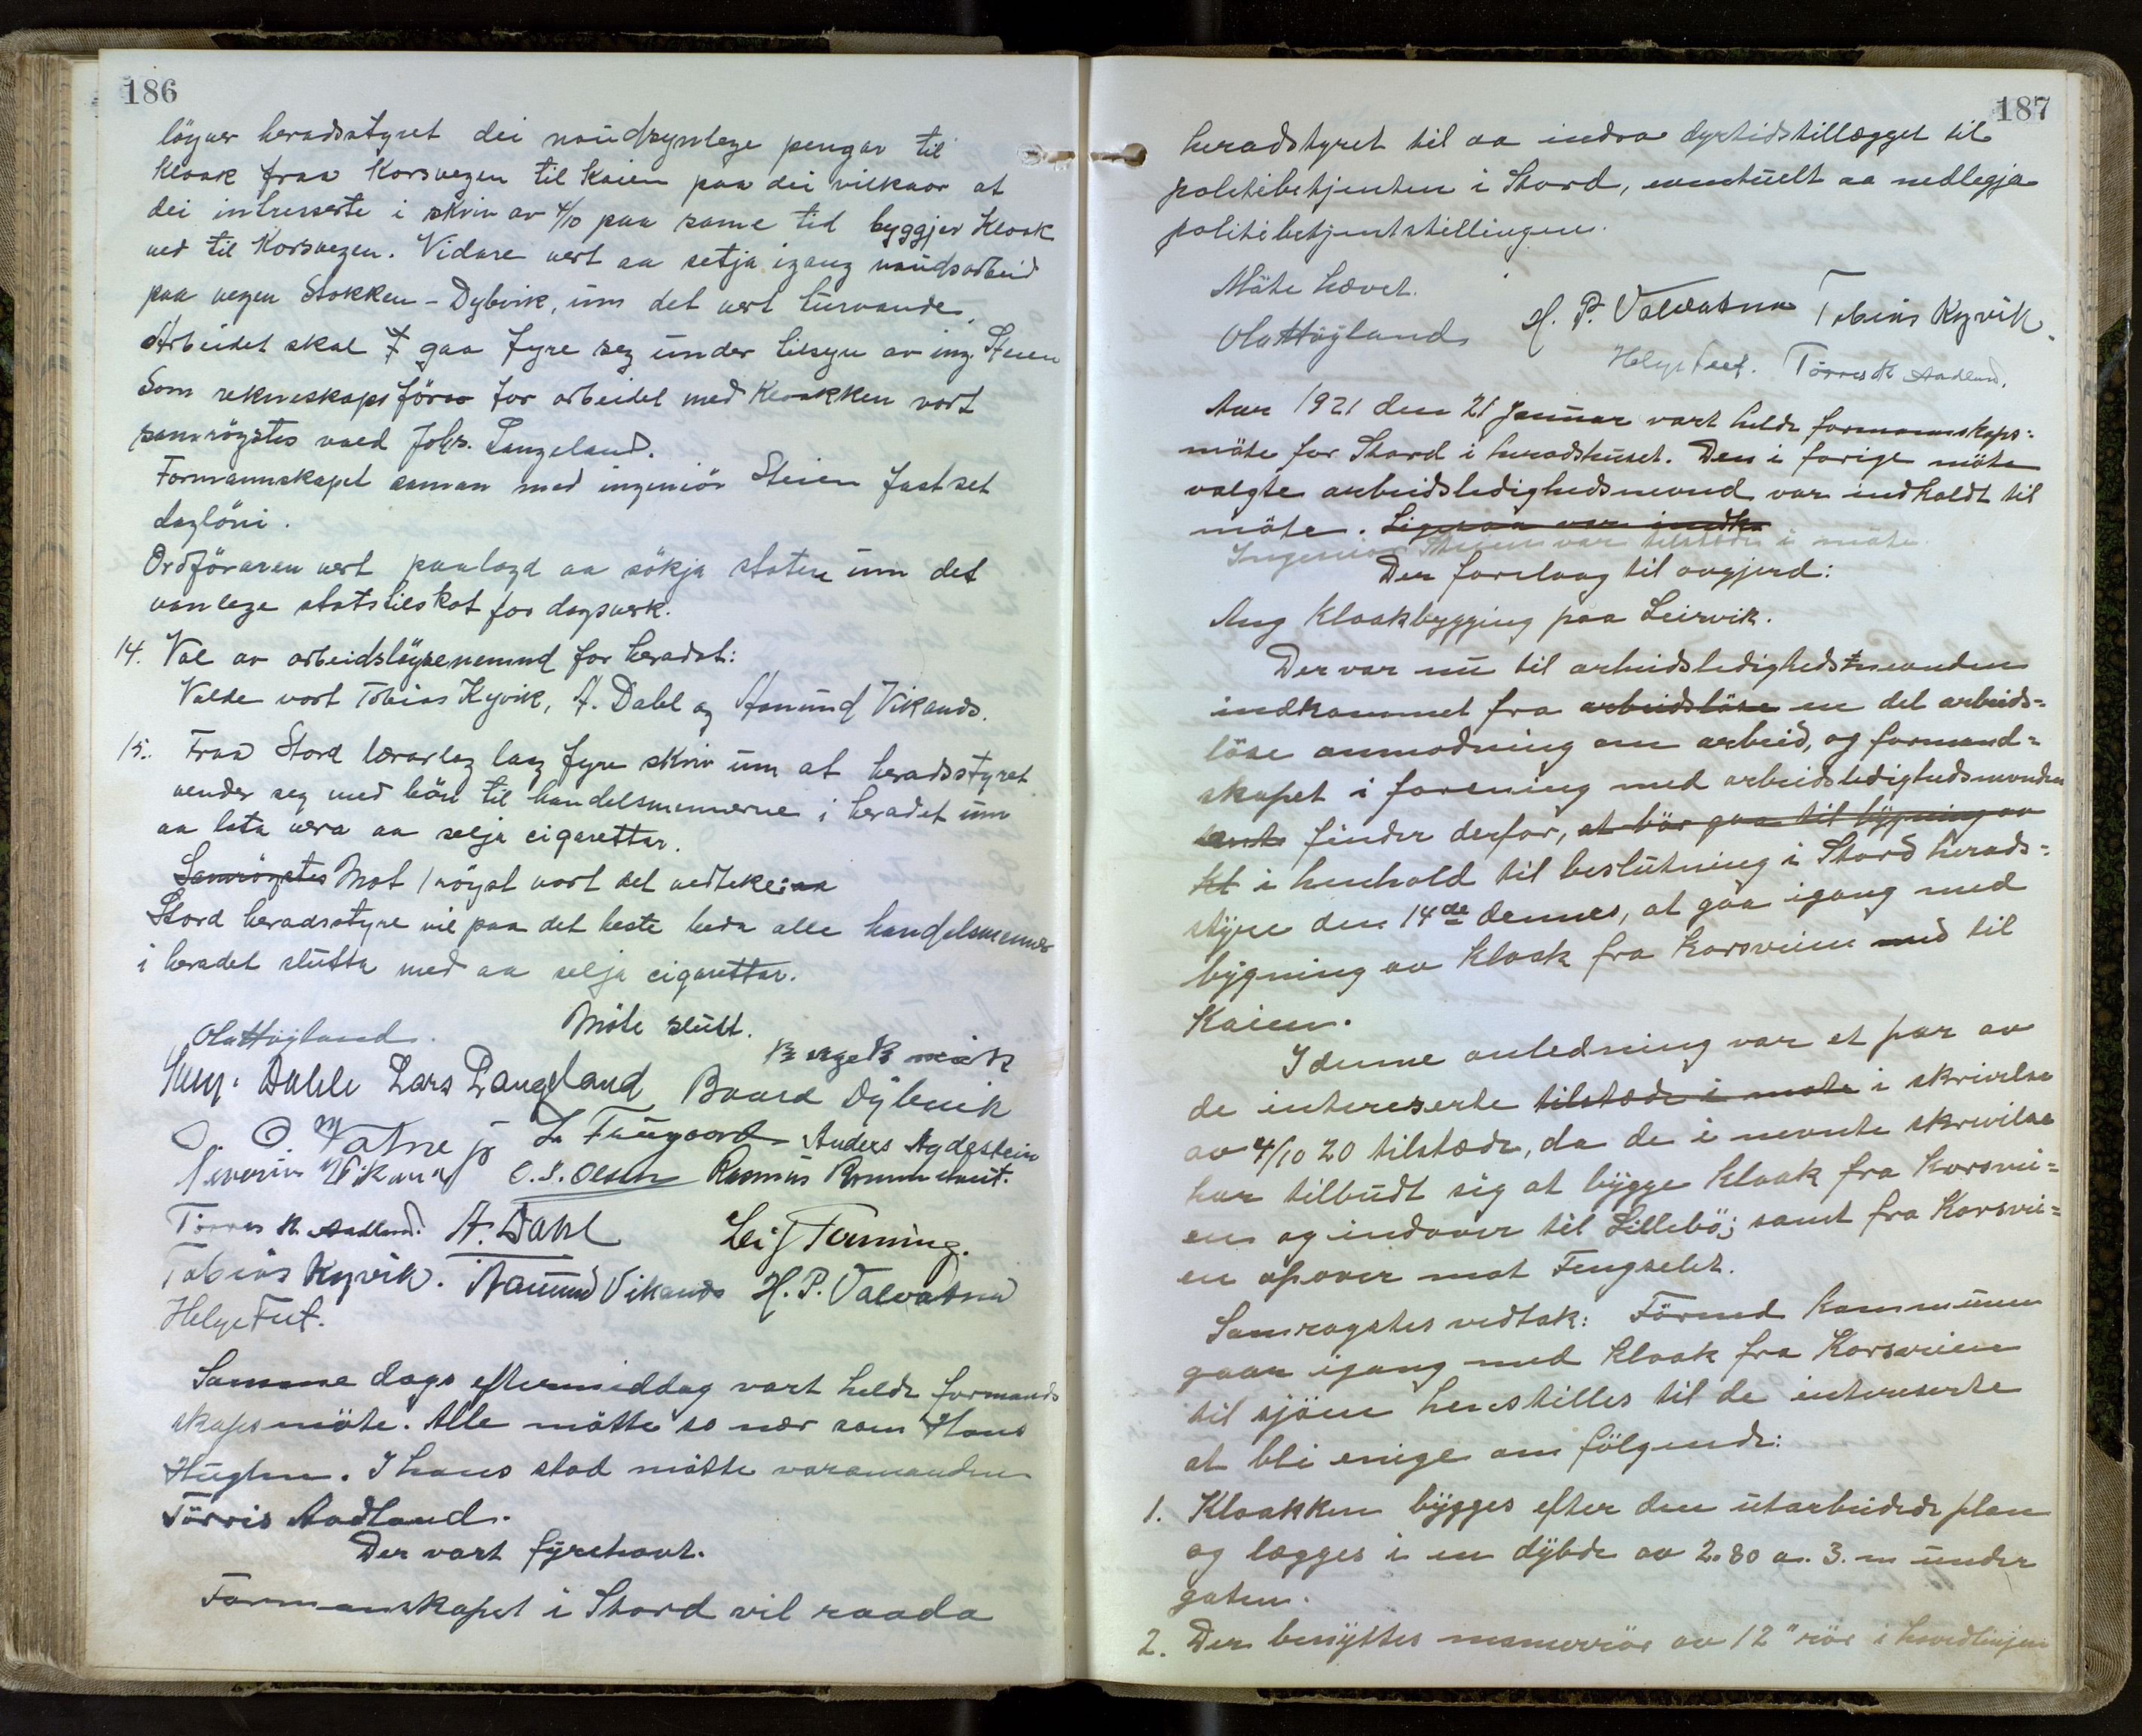 186
löyver heradsstyret dei naudsynlege pengar til
kloak fraa Korsvegen til Kaien paa dei vilkaar at
dei intresserte i skriv av 4/10 paa same tid byggjer kloak
ned til Korsvegen. Vidare vert aa setja igang naudsarbeid
paa vegen Stokken - Dybvik, um det vert turvande.
Arbeidet skal gaa fyre seg under tilsyn av ing. Steien
Som rekneskapsförar for arbeidet med Kloakken vart
samröystes vald Johs. Langeland.
Formannskapet saman med ingeniör Steien fastset
daglöni.
Ordföraren vert paalagd aa sökja staten um det
vanlege statstilskot for dagsverk.
14. Val av arbeidslöysenemnd for heradet:
Valde vart Tobias Kyvik, A. Dahl og Aamund Vikanes.
15. Fraa Stord lærarlag laag fyre skriv um at heradsstyret
vender seg med bön til handelsmennerne i heradet um
aa lata vera aa selja cigarettar.
Samröystes Mot 1 röyst vart det vedteke: aa
Stord heradsstyre vil paa det beste beda alle handelsmenner
i heradet slutta med aa selja cigarettar.
Möte slutt.
Ola Höyland.
Dahle Lars Langeland Baard Dybvik
O. O. Vatne jr L. Tungaard Anders Nygdestein
Severin Vikanes O. S. Olsen Rasmus
Törres K. Aadland. A. Dahl Leif Forming.
Tobias Kyvik. Aamund Vikanes H. P. Valvatna
Helge Fut.
Samme dags eftermiddag vart helde formands
skapsmöte. Alle mötte so nær som Hans
Huglen. I hans stad mötte varamanden
Törris Aadland.
Der vart fyrehavt.
Formanskapet i Stord vil raada
187
heradstyret til aa indra dyrtidstillægget til
politibetjenten i Stord, eventuelt aa nedlegja
politibetjentstillingen.
Möte hævet.
Ola Höyland H. P. Valvatna Tobias Kyvik.
Helge Fut. Törres K Aadland.
Aar 1921 den 21 Januar vart helde formannskaps-
möte for Stord i heradshuset. Den i forige möte
valgte arbeidsledighedsnevnd var indkaldt til
möte. Ligesaa var indka
Ingeniör Steien var tilstede i möte
Der forelaag til avgjerd:
Ang Kloakbygging paa Leirvik.
Der var nu til arbeidsledighedsnevnden
indkommet fra arbeidslöse en del arbeids-
löse anmodning om arbeid, og formand-
skapet i forening med arbeidsledighedsnevnden
samt finder derfor, at bör gaa til bygning av
kl i henhold til beslutning i Stord herads-
styre den 14de dennes, at gaa igang med
bygning av Kloak fra Korsveien ned til
Kaien.
I denne anledning var et par av
de intereserte tilstæde i möte i skrivelse
av 4/10 20 tilstæde, da de i nevnte skrivelse
har tilbudt sig at bygge kloak fra Korsvei-
en og indover til Lillebö; samt fra Korsvei-
en opover mot Fengselet.
Samrøystes vedtak: Förend kommunen
gaar igang med Kloak fra Korsveien
til sjöen henstilles til de intereserte
at bli enige om fölgende:
1. Kloakken bygges efter den utarbeidede plan
og lægges i en dybde av 2.80 a. 3. m under
gaten.
2. Der benyttes rör av 12" rör i hovedlinjen